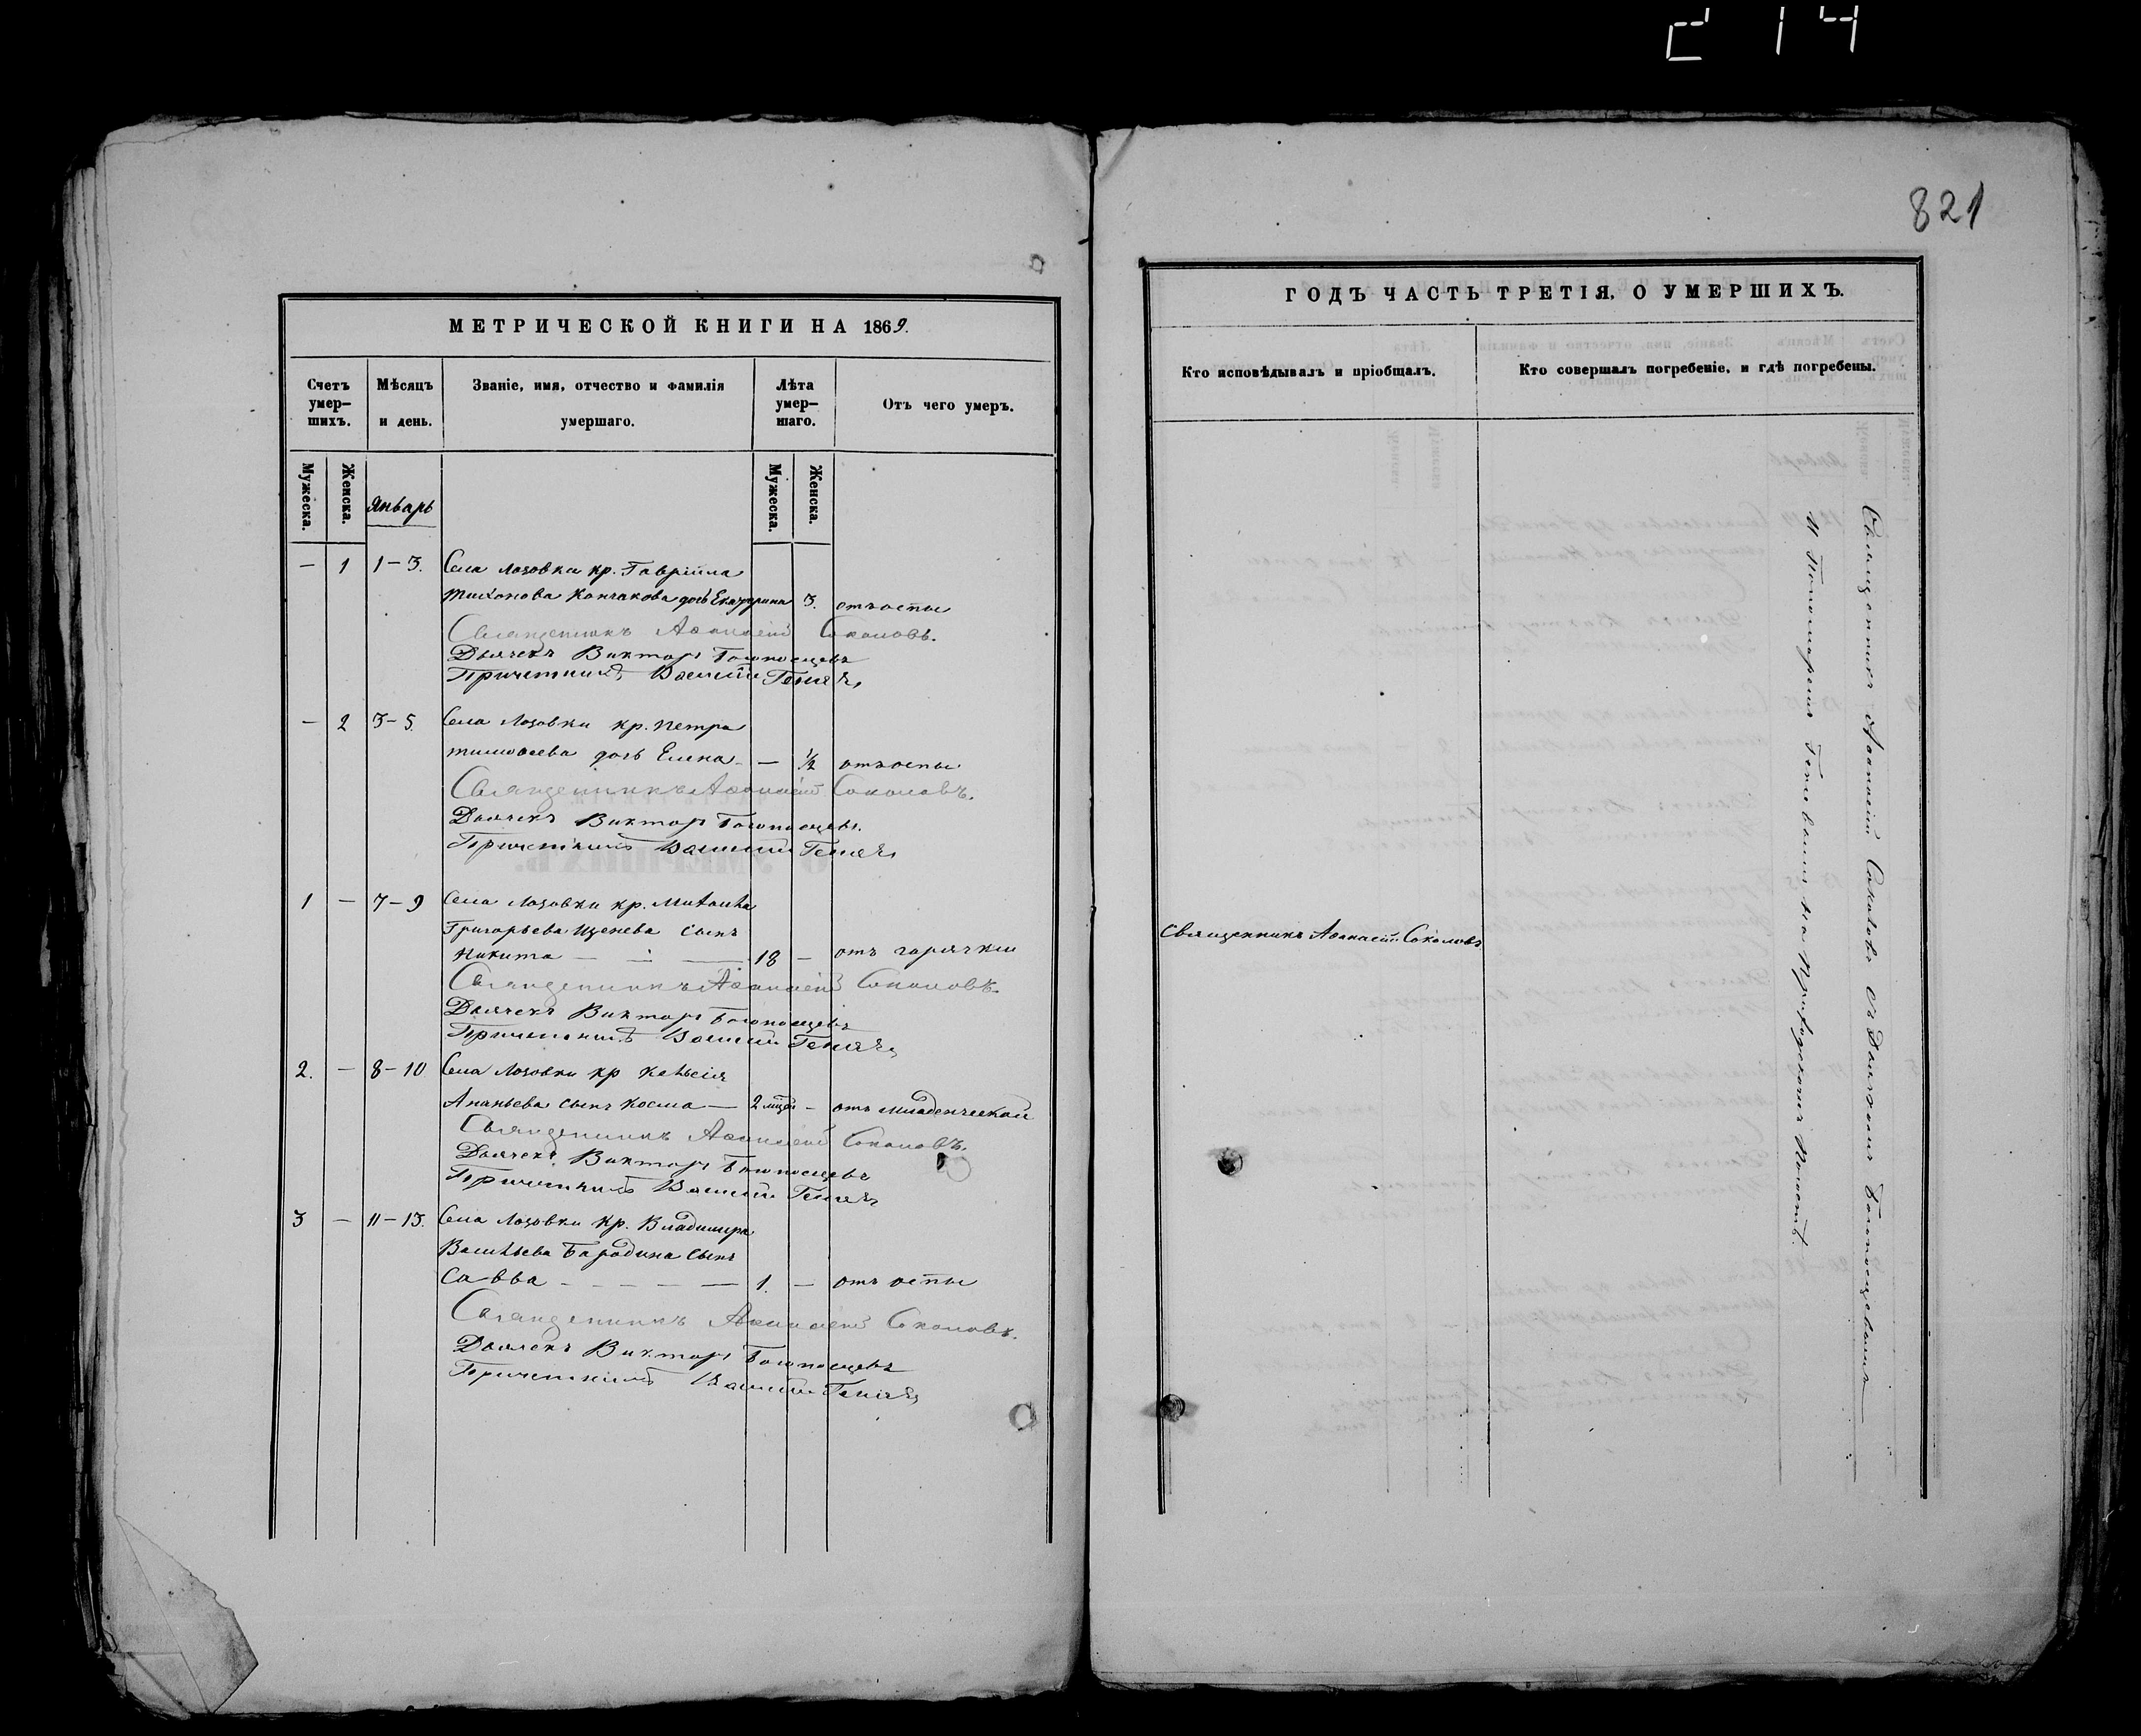 214
821
МЕТРИЧЕСКОЙ КНИГИ НА 1869.
Счетъ умер-шихъ.
Мѣсяцъ и день.
Званіе, имя, отчество и фамилія умершаго.
Лѣта умер-шаго.
Отъ чего умеръ.
Мужеска.
Женска.
Январь
Мужеска.
Женска.
— 1 1-3. Села Лозовки кр. Гавріила
Тихонова Кончакова дочь Екатерина 3. отъ оспы
Священникъ Аѳанасій Соколовъ.
Дьячекъ Викторъ Богоносцевъ
Причетникъ Василій
— 2 3-5. Села Лозовки кр. Петра
Тимоѳеева дочь Елена — ½ отъ оспы
Священникъ Аѳанасій Соколовъ.
Дьячекъ Викторъ Богоносцевъ.
Причетникъ Василій
1 — 7-9 Села Лозовки кр. Михаила
Григорьева Ищенева сынъ
Никита — 18 — отъ горячки
Священникъ Аѳанасій Соколовъ.
Дьячекъ Викторъ Богоносцевъ
Причетникъ Василій
2. — 8-10 Села Лозовки кр
Ананьева сынъ Косма — 2 мѣс — отъ младенческой
Священникъ Аѳанасій Соколовъ.
Дьячекъ Викторъ Богоносцевъ
Причетникъ Василій
3 — 11-13. Села Лозовки кр. Владимира
Васильева Бародина сынъ
Савва — 1. — отъ оспы
Священникъ Аѳанасій Соколовъ.
Дьячекъ Викторъ Богоносцевъ
Причетникъ Василій
ГОДЪ ЧАСТЬ ТРЕТІЯ, О УМЕРШИХЪ.
Кто исповѣдывалъ и пріобщалъ.
Кто совершалъ погребеніе, и гдѣ погребены.
Священникъ Аѳанасій Соколовъ
Священникъ Аѳанасій Соколовъ съ Дьячкомъ Богоносцевымъ
и Пономаремъ на Приходскомъ